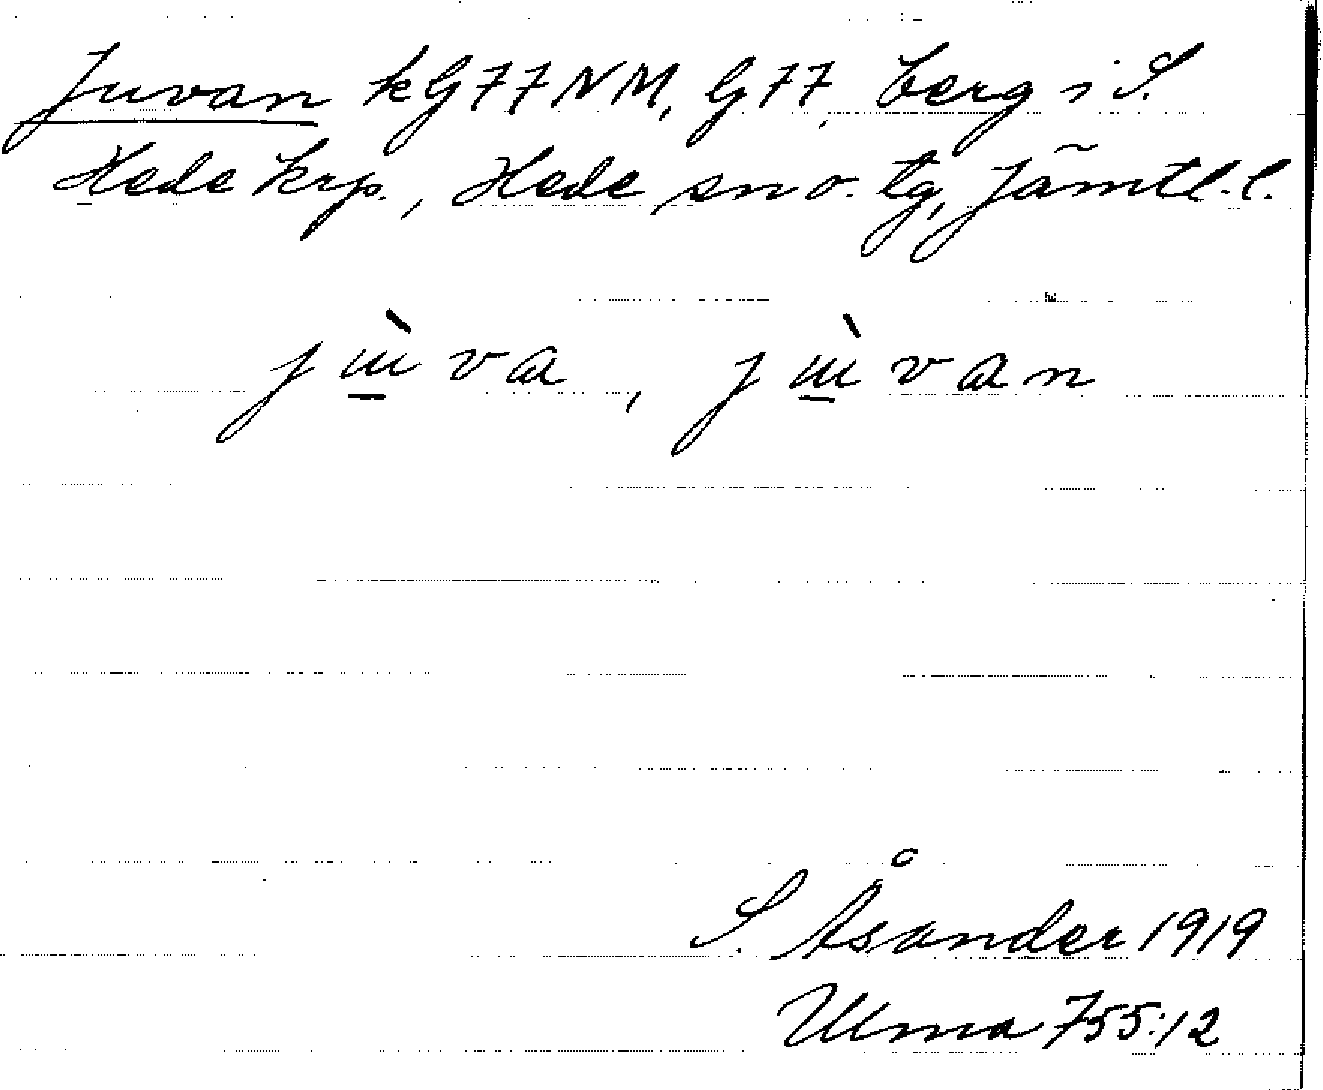 Juvan kG77NM, G77, berg i S.
Hede krp., Hede sn o. tg, Jämtl. l.
jɯ̲̀va, jɯ̲̀van
S. Åsander 1919
Ulma 755:12